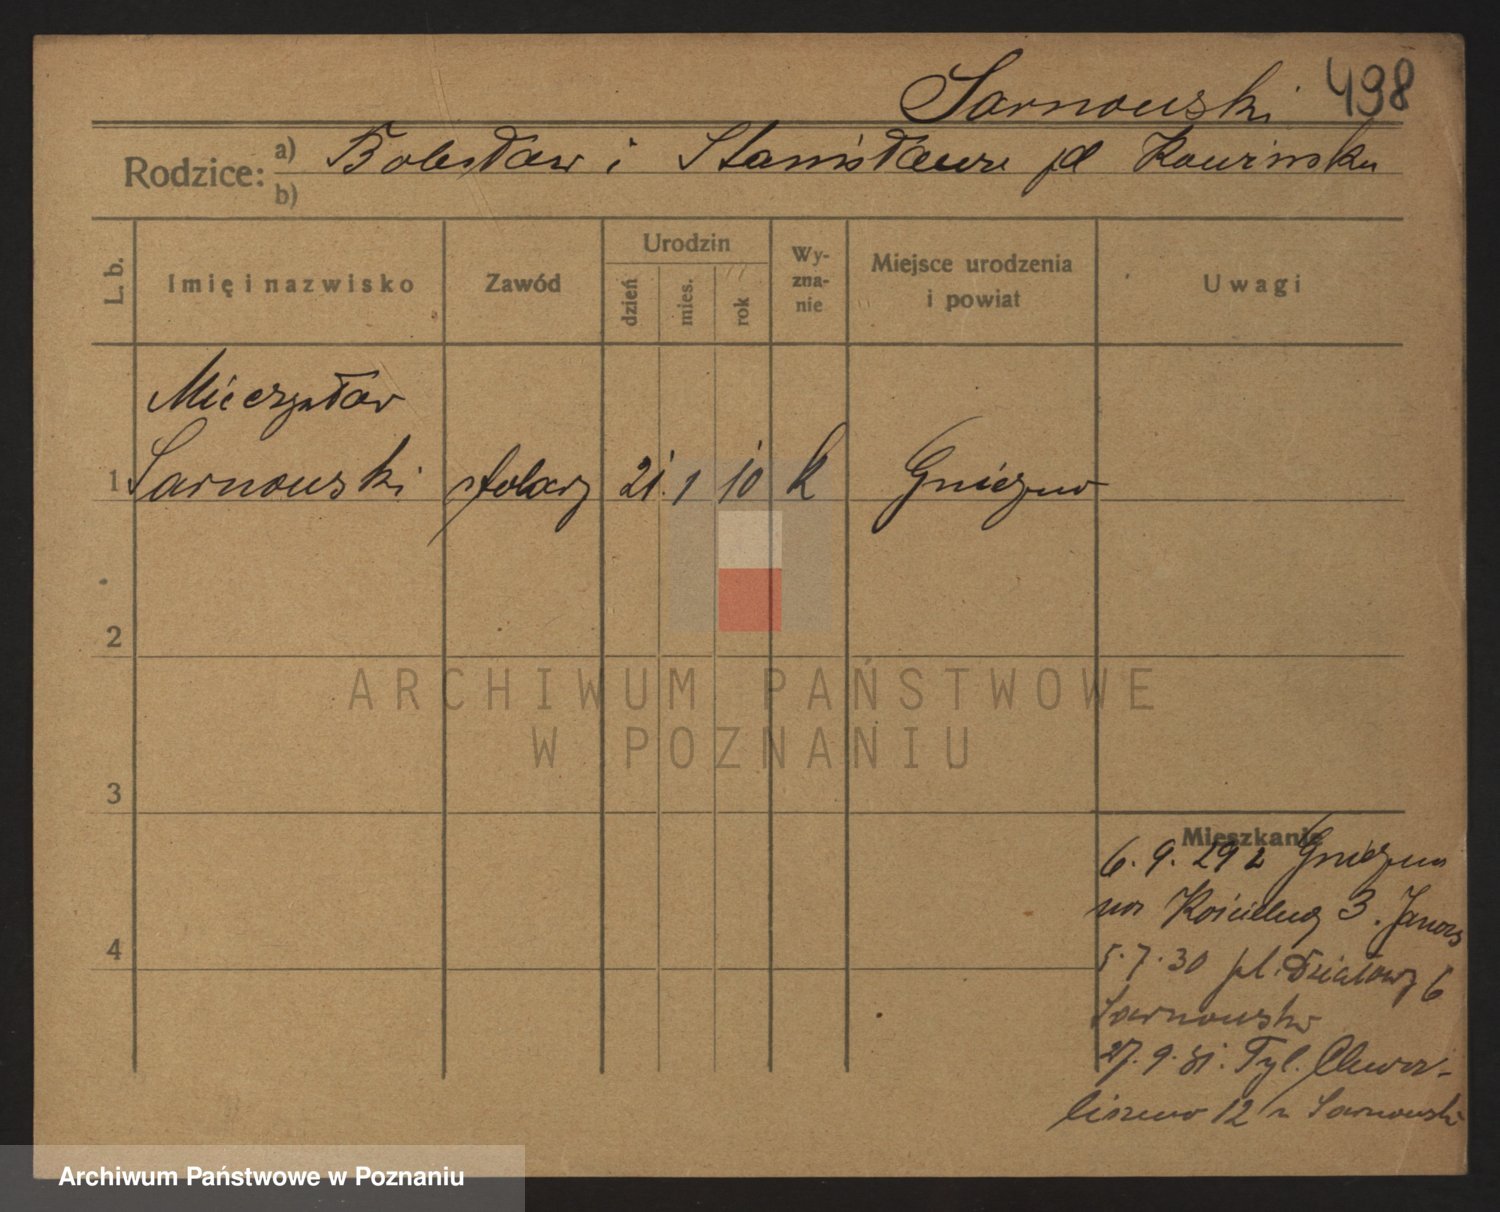 Sarnowski 498
Rodzice: a) Bolesław i Stanisława
b)
L. b.
Imię i nazwisko
Zawód
Urodzin
dzień
mies.
rok
Wy-
zna-
nie
Miejsce urodzenia
i powiat
Uwagi
Mieczysław
1 Sarnowski stolarz 21. 1 10 k Gniezno
2
3
4
Mieszkanie
6. 9. 29 z Gniezna
3.
5. 7. 30 pl. Działowy 6
Sarnowski
27. 9. 31. Tyl. Chwa-
liszewo 12 Sarnowski
ARCHIWUM PAŃSTWOWE
W POZNANIU
Archiwum Państwowe w Poznaniu